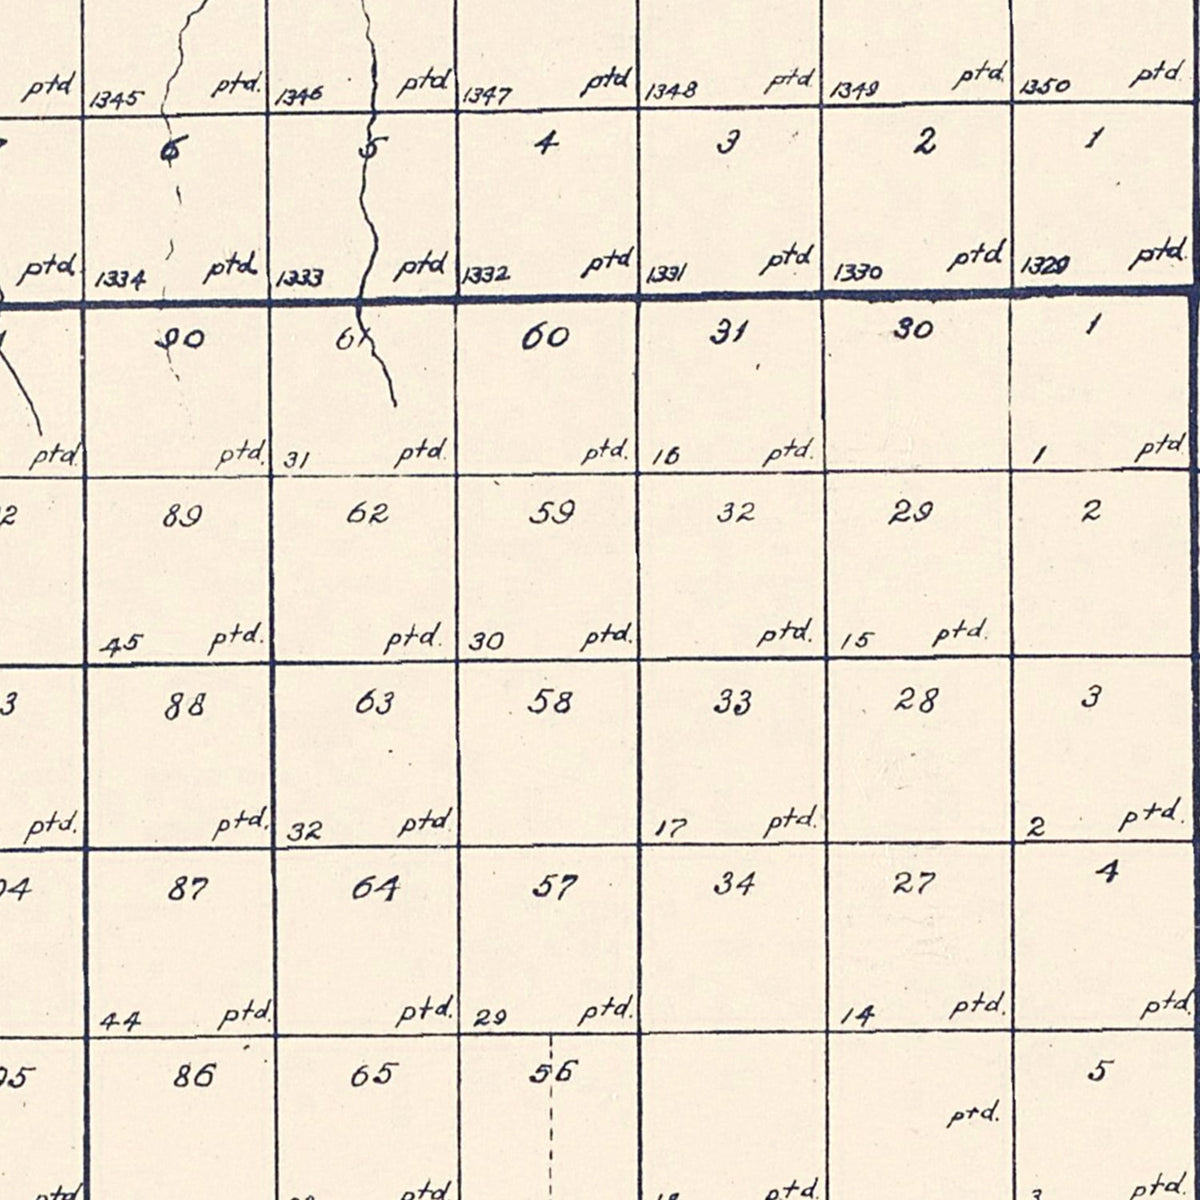 ptd 1345 ptd. 1346 ptd 1347 ptd 1348 ptd 1349 ptd. 1350 ptd.
6 5 4 3 2 1
ptd. 1334 ptd. 1333 ptd 1332 ptd 1331 ptd 1330 ptd 1329 ptd.
90 61 60 31 30 1
ptd. ptd. 31 ptd. ptd. 16 ptd. 1 ptd
89 62 59 32 29 2
45 ptd. ptd. 30 ptd. ptd. 15 ptd.
88 63 58 33 28 3
ptd. ptd. 32 ptd. 17 ptd. 2 ptd.
87 64 57 34 27 4
44 ptd. ptd. 29 ptd. 14 ptd. ptd
86 65 56 5
ptd.
ptd ptd. 18 ptd. 3 ptd.